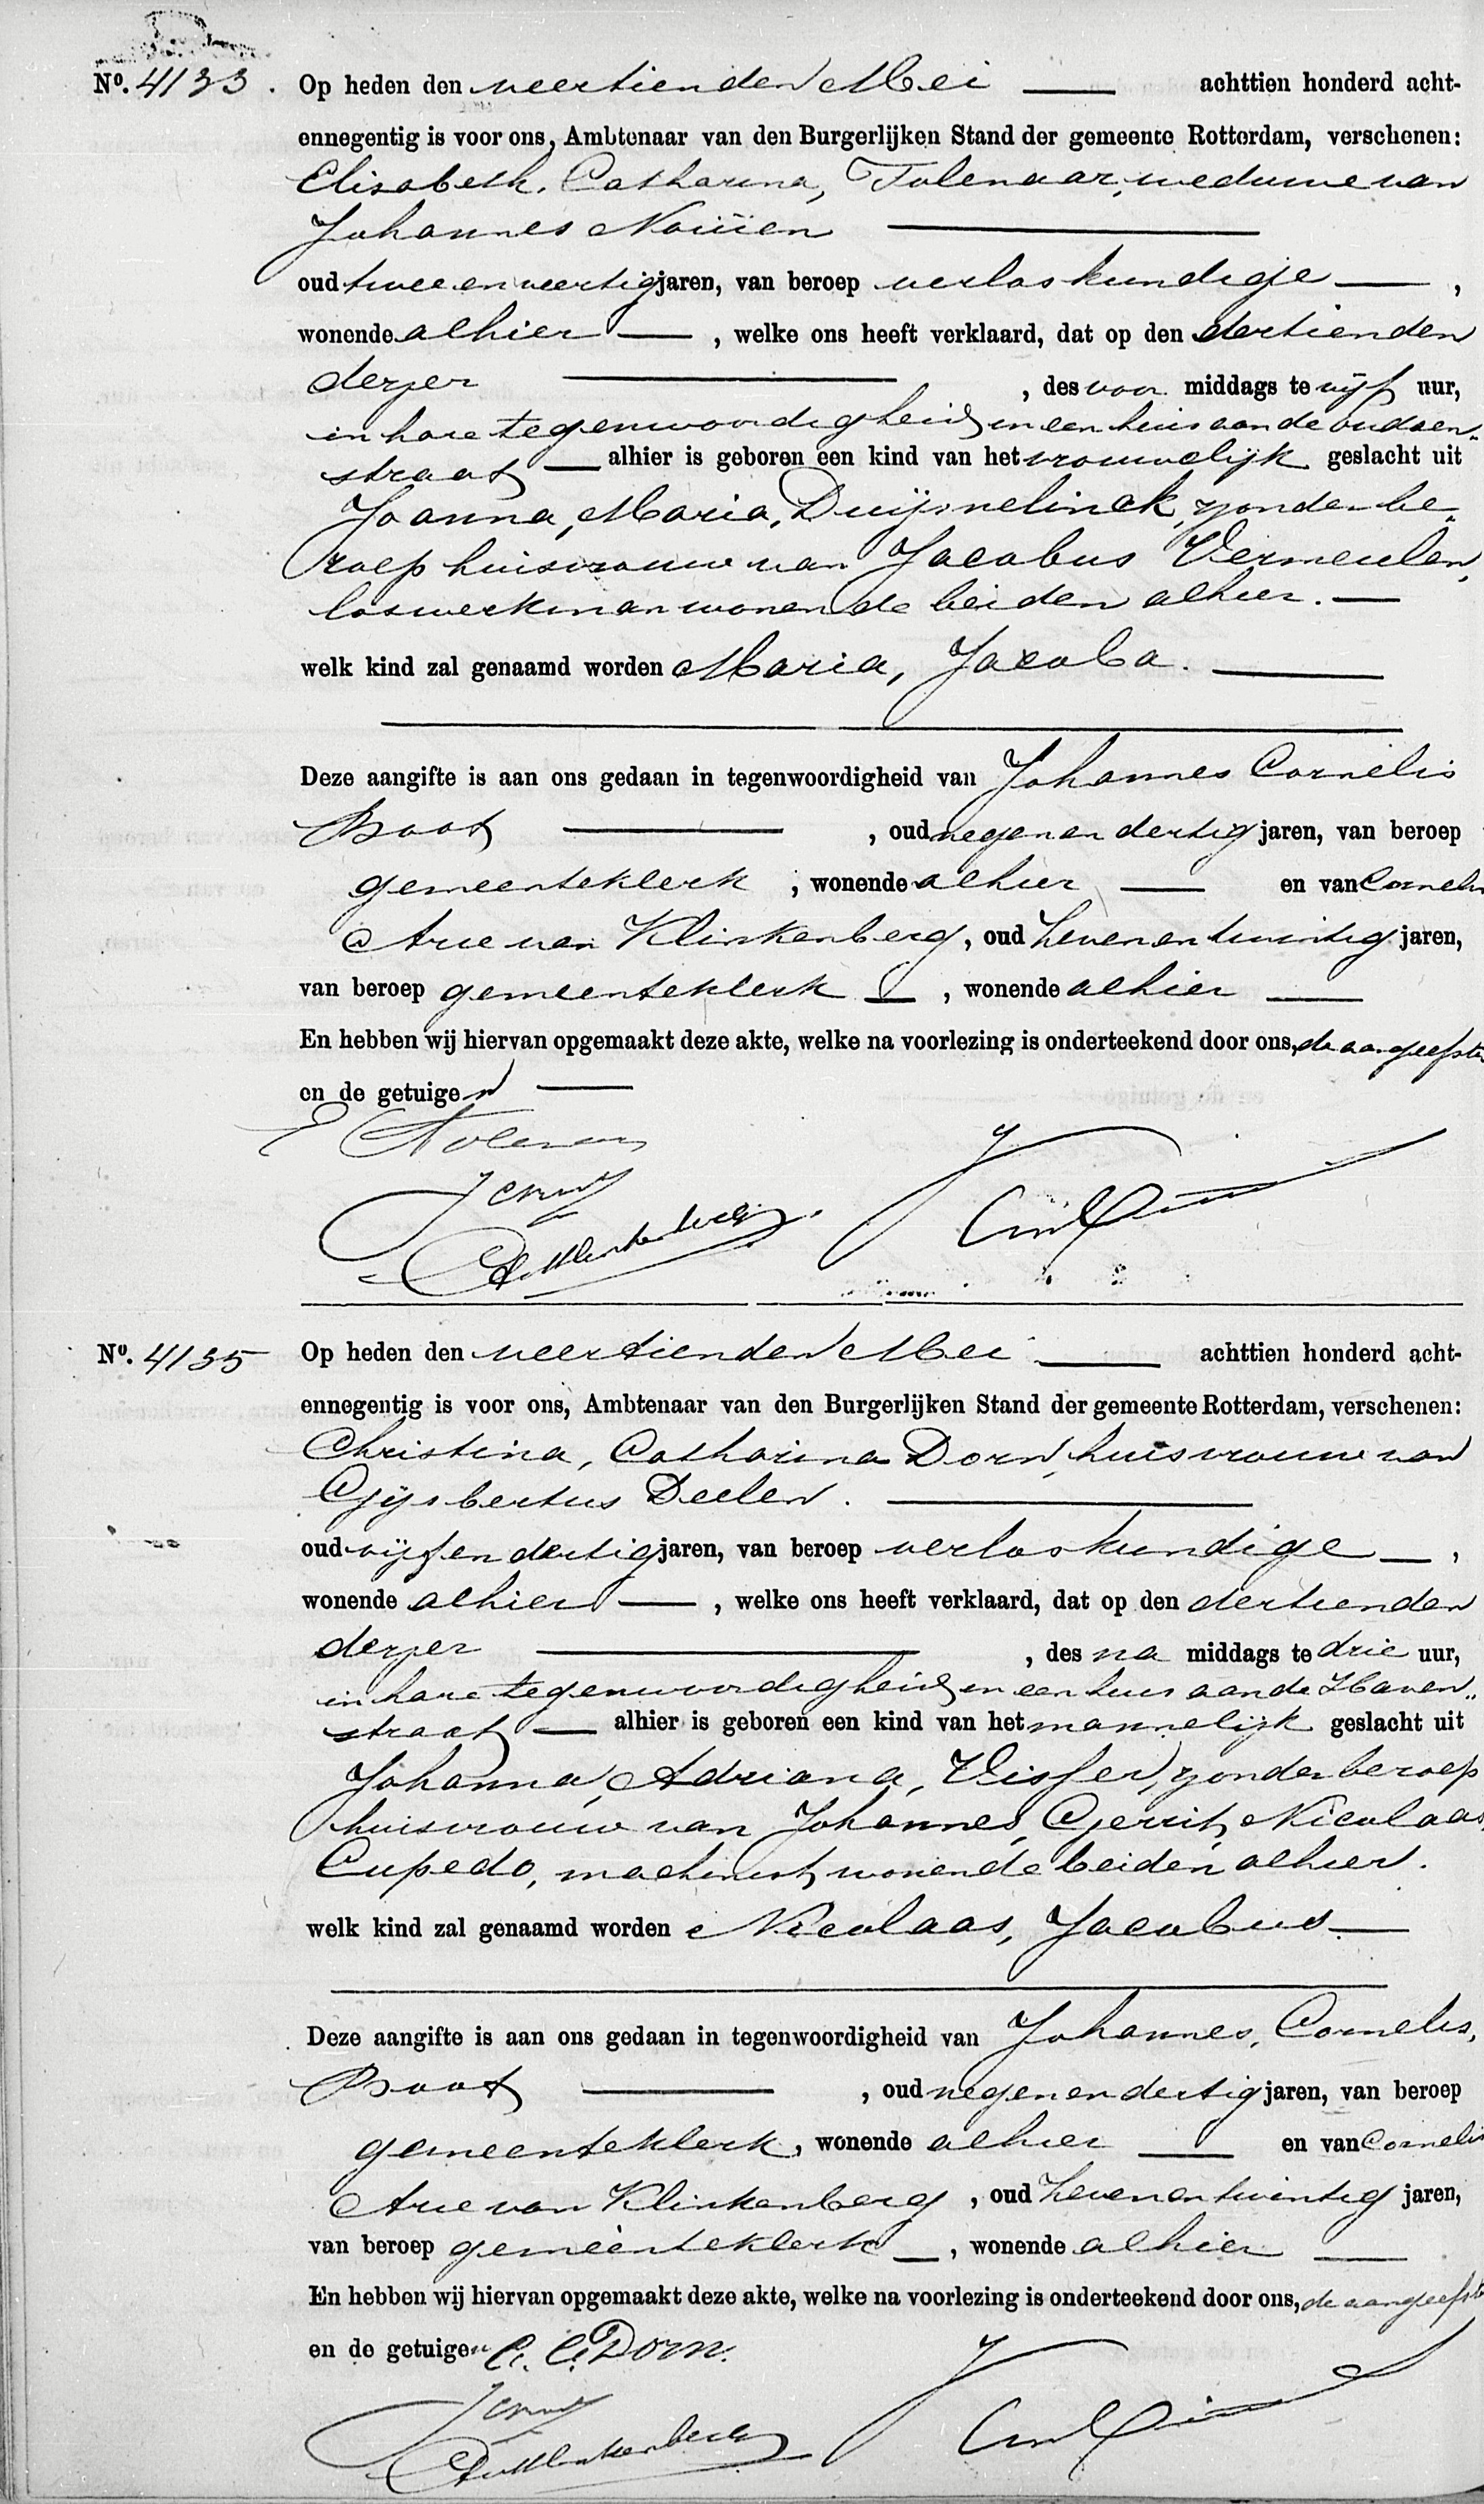 No. 4133. Op heden den veertienden Mei achttien honderd acht-
ennegentig is voor ons, Ambtenaar van den Burgerlijken Stand der gemeente Rotterdam, verschenen:
Elisabeth, Catharina, Tolenaar, weduwe van
Johannes Noüen
oud twee en veertig jaren, van beroep verloskundige,
wonende alhier, welke ons heeft verklaard, dat op den dertienden
dezer, des voor middags te vijf uur,
in hare tegenwoordigheid in een huis aan de Oudaen-
straat alhier is geboren een kind van het vrouwelijk geslacht uit
Joanna, Maria, Duijsnelinck, zonder be-
roep huisvrouw van Jacobus Vermeulen,
loswerkman wonende beiden alhier.
welk kind zal genaamd worden Maria, Jacoba.
Deze aangifte is aan ons gedaan in tegenwoordigheid van Johannes Cornelis
Boot, oud negen en dertig jaren, van beroep
gemeenteklerk, wonende alhier en van Cornelis
Arie van Klinkenberg, oud zeven en twintig jaren,
van beroep gemeenteklerk, wonende alhier
En hebben wij hiervan opgemaakt deze akte, welke na voorlezing is onderteekend door ons, de aangeefster
en de getuigen
CAvKlinkenberg
No. 4135 Op heden den veertienden Mei achttien honderd acht-
ennegentig is voor ons, Ambtenaar van den Burgerlijken Stand der gemeente Rotterdam, verschenen:
Christina, Catharina Dorn, huisvrouw van
Gijsbertus Deelen.
oud vijf en dertig jaren, van beroep verloskundige,
wonende alhier, welke ons heeft verklaard, dat op den dertienden
dezer, des na middags te drie uur,
in hare tegenwoordigheid in een huis aan de Haven-
straat alhier is geboren een kind van het mannelijk geslacht uit
Johanna, Adriana, Visser, zonder beroep
huisvrouw van Johannes, Gerrit, Nicolaas,
Cupedo, machinist, wonende beiden alhier.
welk kind zal genaamd worden Nicolaas, Jacobus
Deze aangifte is aan ons gedaan in tegenwoordigheid van Johannes, Cornelis,
Boot, oud negen en dertig jaren, van beroep
gemeenteklerk, wonende alhier en van Cornelis
Arie van Klinkenberg, oud zeven en twintig jaren,
van beroep gemeenteklerk, wonende alhier
En hebben wij hiervan opgemaakt deze akte, welke na voorlezing is onderteekend door ons, de aangeefster
en de getuigen C. C. Dorn.
CAvKlinkenberg